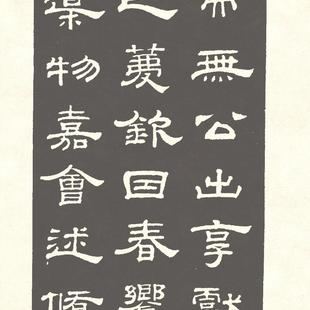 而無公出享獻
之薦欽因春饗
物嘉會述脩